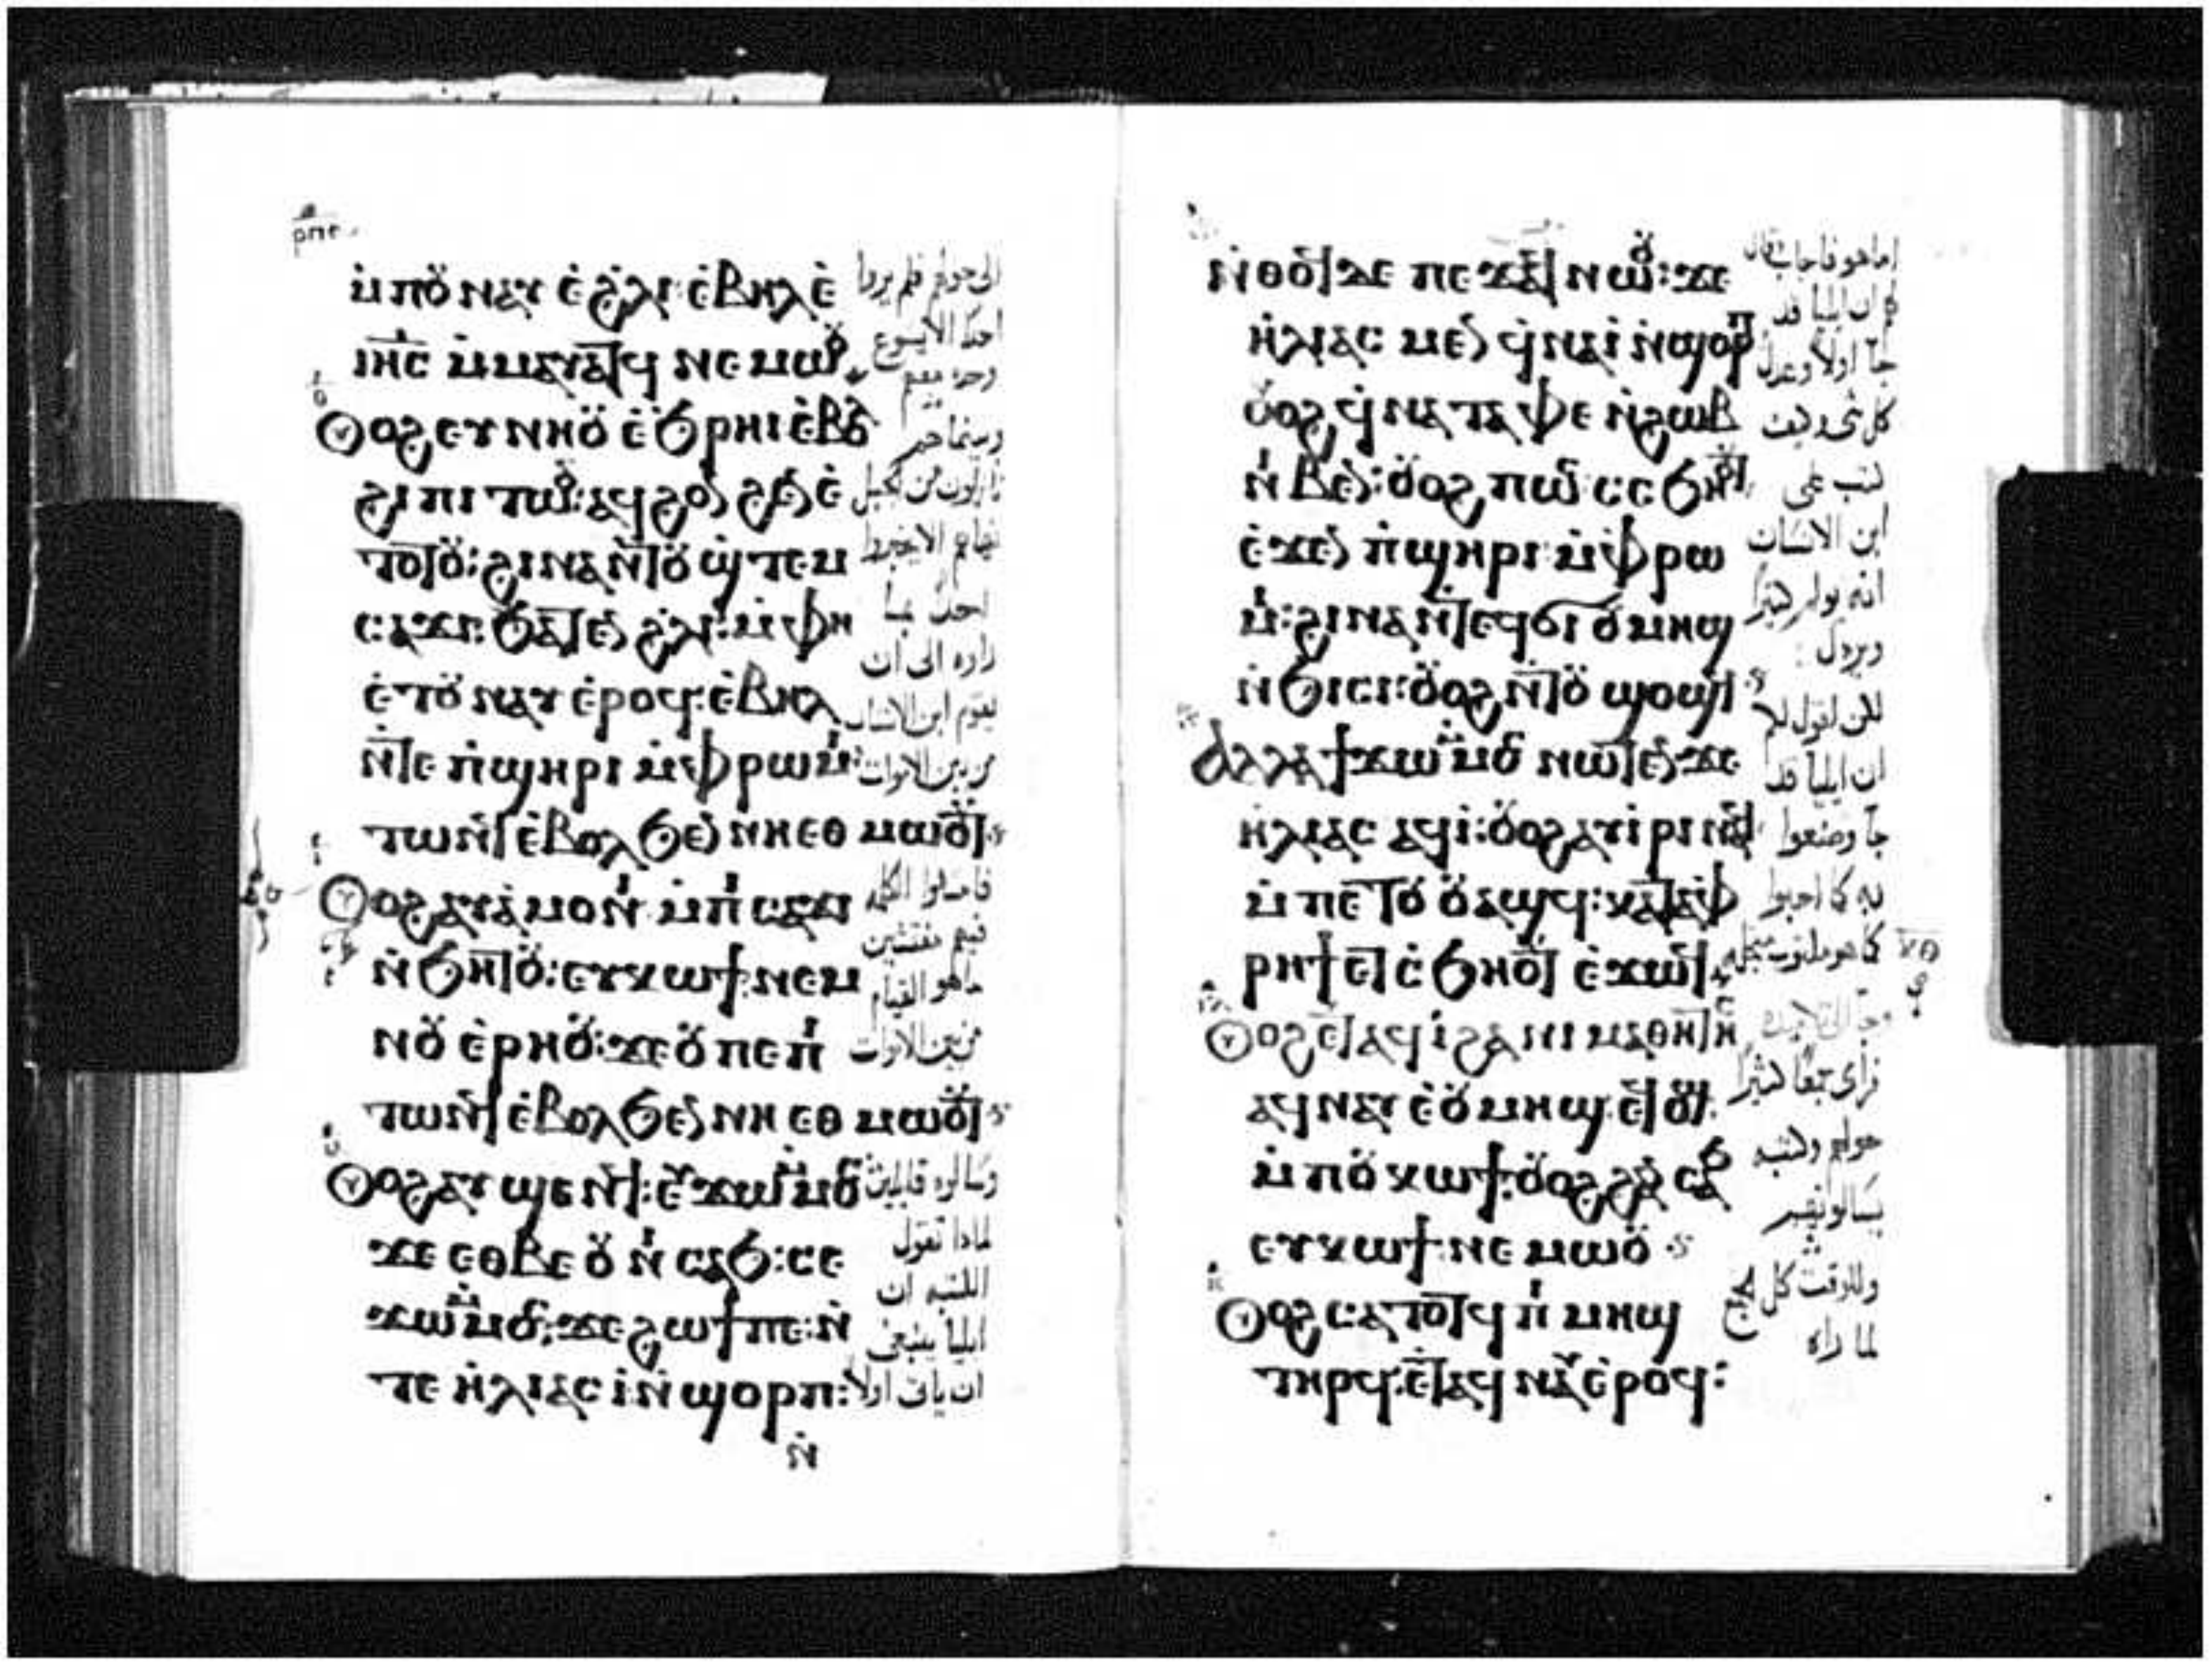 ⲣⲡⲉ
ⲙ̀ⲡⲟⲩⲛⲁⲩ ⲉ̀ϩⲗⲓ: ⲉ̀ⲃⲏⲗ ⲉ̀
ⲓⲏ̅ⲥ ⲙ̀ⲙⲁⲩⲁⲧϥ ⲛⲉⲙⲱⲟⲩ
ⲟⲩⲟϩ ⲉⲩⲛⲏⲟⲩ ⲉ̀ϧⲣⲏⲓ ⲉ̀ⲃⲟⲗ
ϩⲓ ⲡⲓⲧⲱⲟⲩ: ⲁϥϩⲟⲛϩⲉⲛ ⲉ̀
ⲧⲟⲧⲟⲩ: ϩⲓⲛⲁ ⲛ̀ⲧⲟⲩϣⲧⲉⲙ
ⲥⲁϫⲓ: ϧⲁⲧⲉⲛ ϩⲗⲓ: ⲙ̀ⲫⲏ
ⲉ̀ⲧⲟⲩⲛⲁⲩ ⲉ̀ⲣⲟϥ: ⲉ̀ⲃⲏⲗ
ⲛ̀ⲧⲉ ⲡ̀ϣⲏⲣⲓ ⲙ̀ⲫⲣⲱⲙⲓ
ⲧⲱⲛϥ ⲉ̀ⲃⲟⲗϧⲉⲛ ⲛⲏⲉⲑⲙⲱⲟⲩⲧ
ⲟⲩⲟϩ ⲁⲩⲁ̀ⲙⲟⲛⲓ ⲙ̀ⲡⲓⲥⲁϫⲓ
ⲛ̀ϧⲏⲧⲟⲩ: ⲉⲩⲕⲱϯ ⲛⲉⲙ
ⲛⲟⲩⲉ̀ⲣⲏⲟⲩ: ϫⲉ ⲟⲩ ⲡⲉ ⲡⲓ
ⲧⲱⲛϥ ⲉ̀ⲃⲟⲗϧⲉⲛ ⲛⲏⲉⲑⲙⲱⲟⲩⲧ
ⲟⲩⲟϩ ⲁⲩϣⲉⲛϥ: ⲉⲩϫⲱ ⲙ̀ⲙⲟⲥ
ϫⲉ ⲉⲑⲃⲉⲟⲩ ⲛⲓⲥⲁϧ: ⲥⲉ
ϫⲱ ⲙ̀ⲙⲟⲥ: ϫⲉ ϩⲱϯ ⲡⲉ: ⲛ̀
ⲧⲉ ⲏ̀ⲗⲓⲁⲥ ⲓ̀ ⲛ̀ϣⲟⲣⲡ:
ⲛ̀
الى حولهم فلم يروا
احدًا الا يسوع
وحده معهم
وبينما هم
نازلون من الجبل
نهاهم الا يخبروا
احدًا بما
راوه الى ان
يقوم ابن الانسان
من بين الاموات
فامسكوا الكلمه
فيهم مفتشين
ماهو القيام
من بين الاموات
وسالوه قايلين
لماذا تقول
الكتبه ان
ايليا ينبغى
ان ياتى اولًا
ⲛ̀ⲑⲟϥ ⲇⲉ ⲡⲉϫⲁϥ ⲛⲱⲟⲩ: ϫⲉ
ⲏ̀ⲗⲓⲁⲥ ⲙⲉⲛ ϥ̀ⲛⲁⲓ̀ ⲛ̀ϣⲟⲣⲡ
ⲟⲩⲟϩ ϥ̀ⲛⲁⲧⲁⲫⲉ ⲛ̀ϩⲱⲃ
ⲛⲓⲃⲉⲛ: ⲟⲩⲟϩ ⲡⲱⲥ ⲥ̀ⲥϧⲏⲟⲩⲧ
ⲉ̀ϫⲉⲛ ⲡ̀ϣⲏⲣⲓ ⲙ̀ⲫⲣⲱ
ⲙⲓ: ϩⲓⲛⲁ ⲛ̀ⲧⲉϥϭⲓ ⲟⲩⲙⲏϣ
ⲛ̀ϧⲓⲥⲓ: ⲟⲩⲟϩ ⲛ̀ⲧⲟⲩϣⲟϣϥ
ⲁⲗⲗⲁ ϯϫⲱ ⲙ̀ⲙⲟⲥ ⲛⲱⲧⲉⲛ ϫⲉ
ⲏ̀ⲗⲓⲁⲥ ⲁϥⲓ̀: ⲟⲩⲟϩ ⲁⲩⲓ̀ⲣⲓ ⲛⲁϥ
ⲙ̀ⲡⲉⲧⲟⲩⲟⲩⲁϣϥ: ⲕⲁⲧⲁⲫ
ⲣⲏϯ ⲉⲧⲥ̀ϧⲏⲟⲩⲧ ⲉ̀ϫⲱϥ
ⲟⲩⲟϩ ⲉⲧⲁϥⲓ̀ ϩⲁ ⲛⲓⲙⲁⲑⲏⲧⲏⲥ
ⲁϥⲛⲁⲩ ⲉ̀ⲟⲩⲙⲏϣ ⲉϥⲟϣ
ⲙ̀ⲡⲟⲩⲕⲱϯ: ⲟⲩⲟϩ ϩⲁⲛⲥⲁϧ
ⲉⲩⲕⲱϯ ⲛⲉⲙⲱⲟⲩ
ⲟⲩⲟϩ ⲥⲁⲧⲟⲧϥ ⲡⲓⲙⲏϣ
ⲧⲏⲣϥ: ⲉⲧⲁϥⲛⲁⲩ ⲉ̀ⲣⲟϥ:
اما هو فاجاب وقال
ان ايليا قد
جآ اولًا وعدل
كل شى وكيف
كتب على
ابن الانسان
انه يولم كثيرًا
ويرذل
لكن اقول لكم
ان ايليا قد
جآ وصنعوا
به كما احبوا
كما هو مكتوب من اجله
وجآ الى التلاميذ
فراى جمعًا كثيرًا
حولهم وكتبه
وللوقت كل الجمع
لما راه